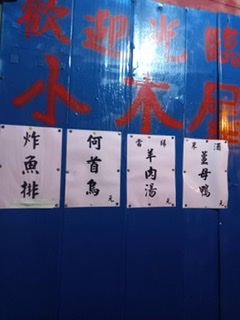 歡迎光臨
小木屋
炸魚排
何首烏
元
當歸
羊肉湯
元
米酒
薑母鴨
元